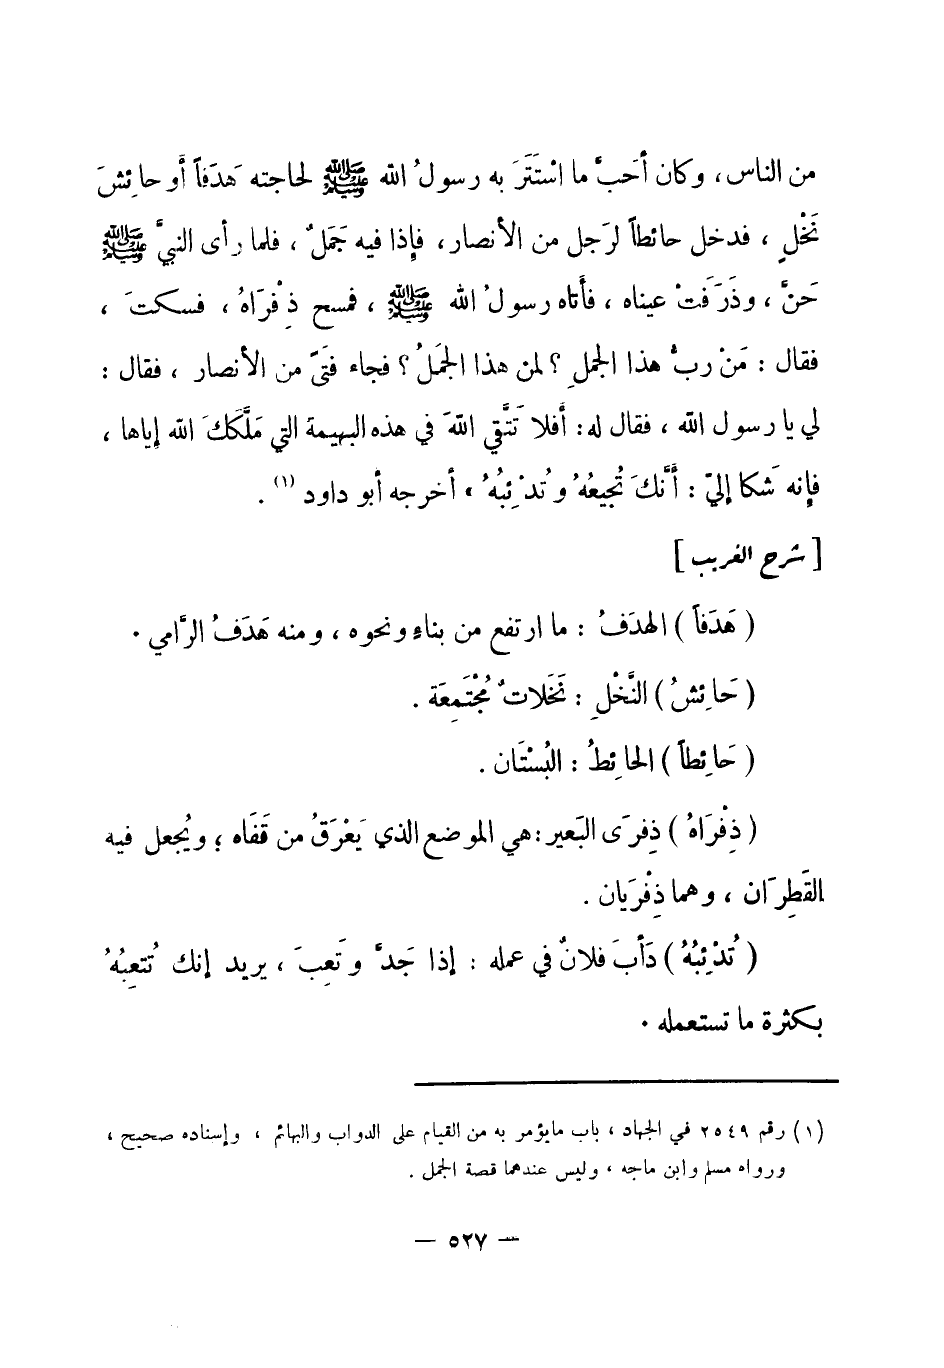 من الناس ، وكان أَحبَّ ما اسْتَتَرَ به رسولُ الله ﷺ لحاجته هَدَفاً أَو حائِشَ
نَخْلٍ ، فدخل حائطاً لرَجل من الأنصار ، فإِذا فيه جَمَلٌ ، فلما رأى النبيَّ ﷺ
حَنَّ ، وذَرَفَتْ عيناه ، فأَتاه رسولُ الله ﷺ ، فمسح ذِفْرَاهُ ، فسكتَ ،
فقال : مَنْ ربُّ هذا الجملِ ؟ لمن هذا الجمَلُ ؟ فجاء فتًى من الأنصار ، فقال :
لي يا رسول الله ، فقال له : أَفلا تَتَّقي اللهَ في هذه البهيمة التي مَلَّكَكَ الله إِياها ،
فإِنه شَكا إِليّ : أَنَّكَ تُجيعُهُ وتُدْئِبُهُ » أخرجه أبو داود (١) .
[ شرح الغريب ]
( هَدَفاً ) الهدَفُ : ما ارتفع من بناءٍ ونحوه ، ومنه هَدَفُ الرَّامي .
( حَائِشُ ) النَّخْلِ : نَخَلاتٌ مُجْتَمِعَة .
( حَائِطاً ) الحائِطُ : البُسْتَان .
( ذِفْرَاهُ ) ذِفرَى البَعير : هي الموضع الذي يَعْرَقُ من قَفَاه ؛ ويُجعل فيه
القَطِرَان ، وهما ذِفْرَيان .
( تُدْئِبُهُ ) دَأَبَ فلانٌ في عمله : إذا جَدَّ وتَعِبَ ، يريد إنك تُتعِبُهُ
بكثرة ما تستعمله .
(١) رقم ٢٥٤٩ في الجهاد ، باب ما يؤمر به من القيام على الدواب والبهائم ، وإسناده صحيح ،
ورواه مسلم وابن ماجه ، وليس عندهما قصة الجمل .
— ٥٢٧ —